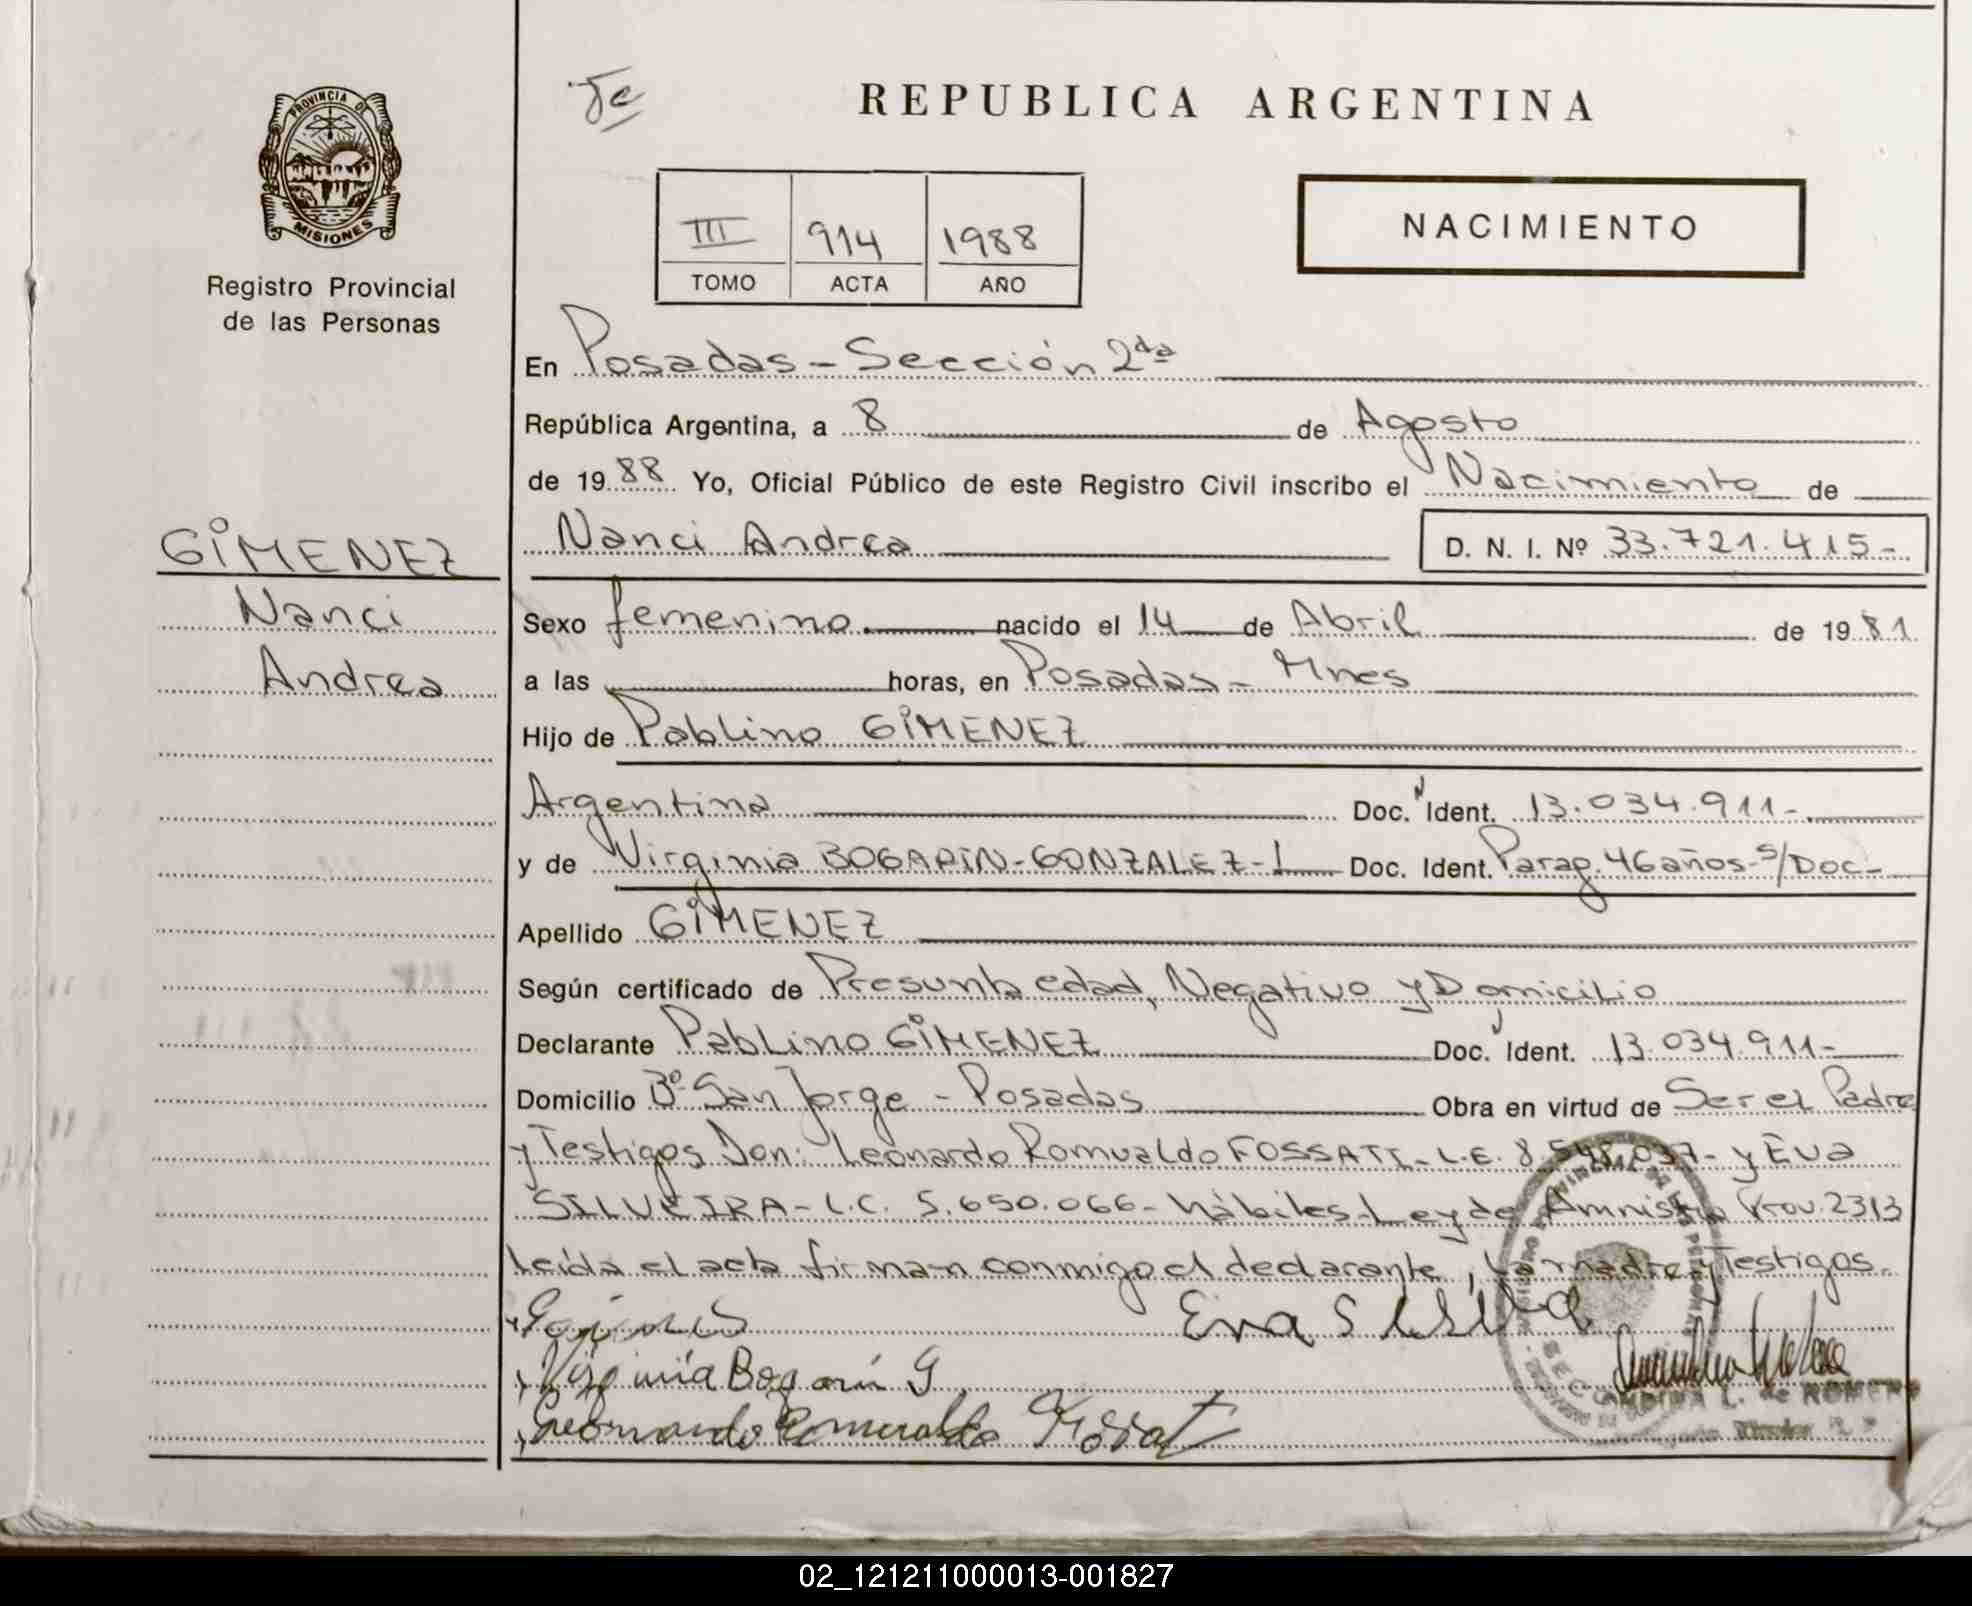 PROVINCIA DE
MISIONES
Registro Provincial
de las Personas
REPUBLICA ARGENTINA
III 914 1988
TOMO ACTA AÑO
NACIMIENTO
En Posadas - Sección 2da
República Argentina, a 8 de Agosto
de 1988 Yo, Oficial Público de este Registro Civil inscribo el Nacimiento de
Nanci Andrea D. N. I. Nº 33.721.415-
GIMENEZ
Nanci
Andrea
Sexo femenino nacido el 14 de Abril de 1981
a las horas, en Posadas - Mnes
Hijo de Pablino GIMENEZ
Argentina Doc. Ident. 13.034.911-
y de Virginia BOGARIN-GONZALEZ- Doc. Ident. Parag. 46 años-s/Doc-
Apellido GIMENEZ
Según certificado de Presunta edad, Negativo y Domicilio
Declarante Pablino GIMENEZ Doc. Ident. 13.034.911-
Domicilio Bº San Jorge - Posadas Obra en virtud de Ser el Padre
y Testigos Don: Leonardo Romualdo FOSSATI- L.E. y Eva
SILVEIRA- L.C. 5.650.066- hábiles-Ley de Amnistia Prov. 2313
Leída el acta firman conmigo el declarante, la madre y Testigos.
Eva
Virginia Bogarin G
02_121211000013-001827